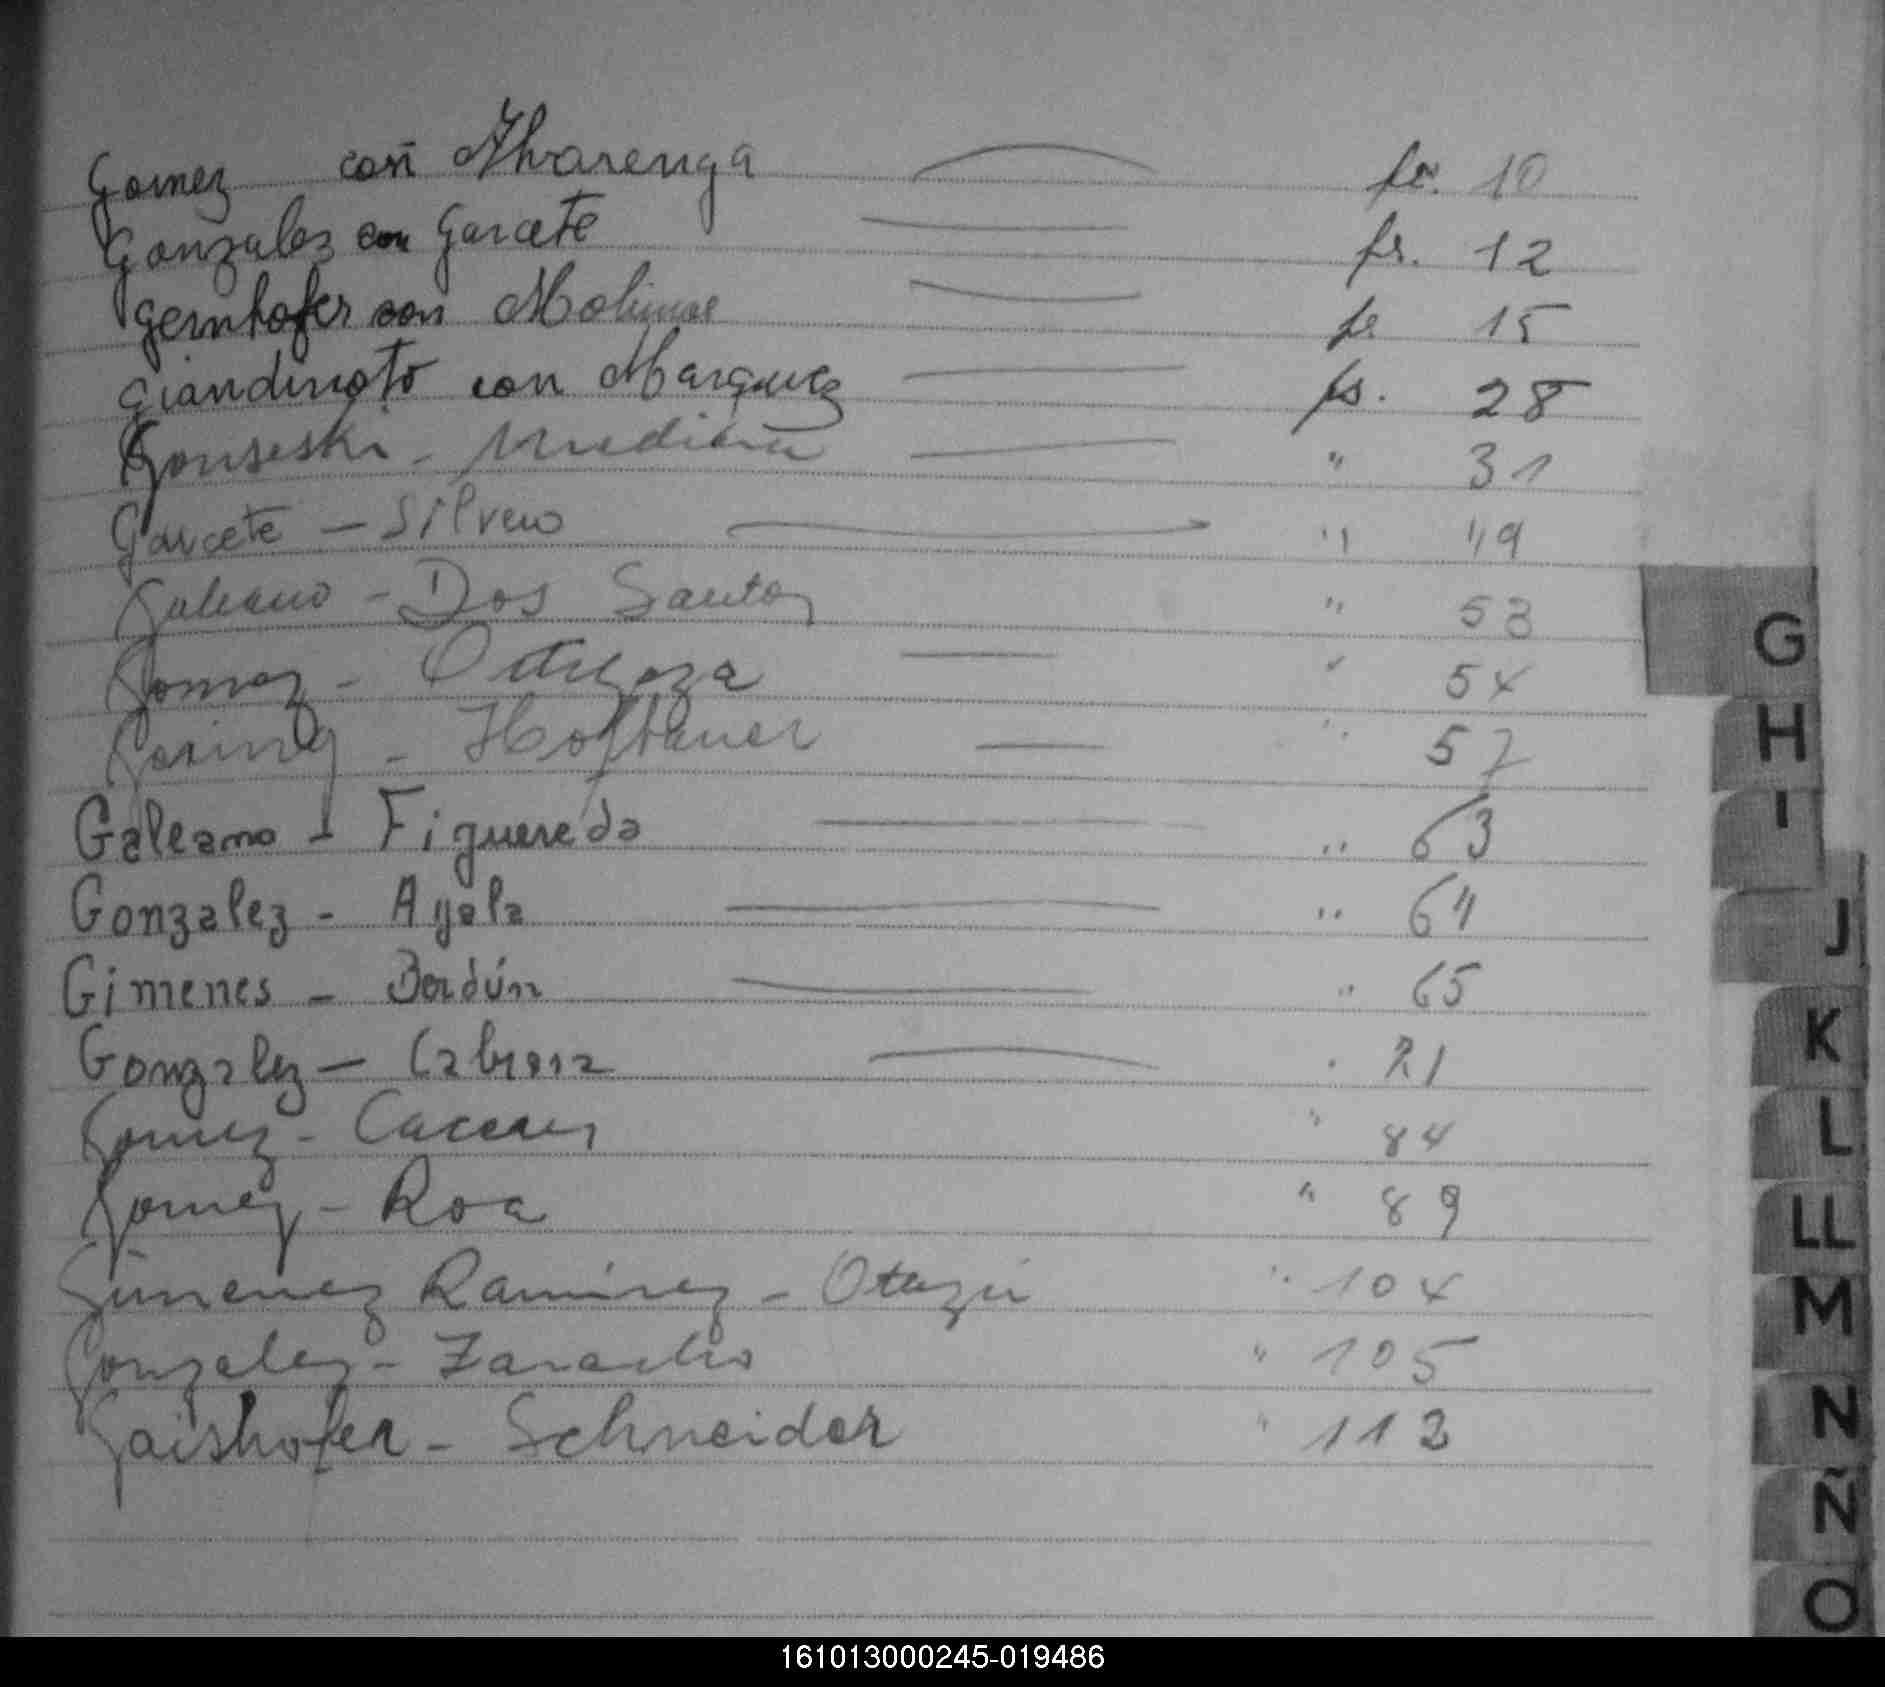 Gomez con Alvarenga fs. 10
Gonzalez con Garcete fs. 12
Gernhofer con Molinas fs 15
Giandinoto con Marquez fs. 28
Gonseski - Medina " 31
Garcete - Silvero " 49
Galeano - Dos Santos " 53
Gomez - Ortigoza " 54
Goring - Hoffbauer " 57
Galeano - Figueredo " 63
Gonzalez - Ayala " 64
Gimenes - Bordón " 65
Gonzalez - Cabrera " 71
Gomez - Caceres " 84
Gomez - Roa " 89
Gimenez Ramirez - Otazú " 104
Gonzalez - Zaracho " 105
Gaishofer - Schneider " 113
G
H
I
J
K
L
LL
M
N
Ñ
O
161013000245-019486